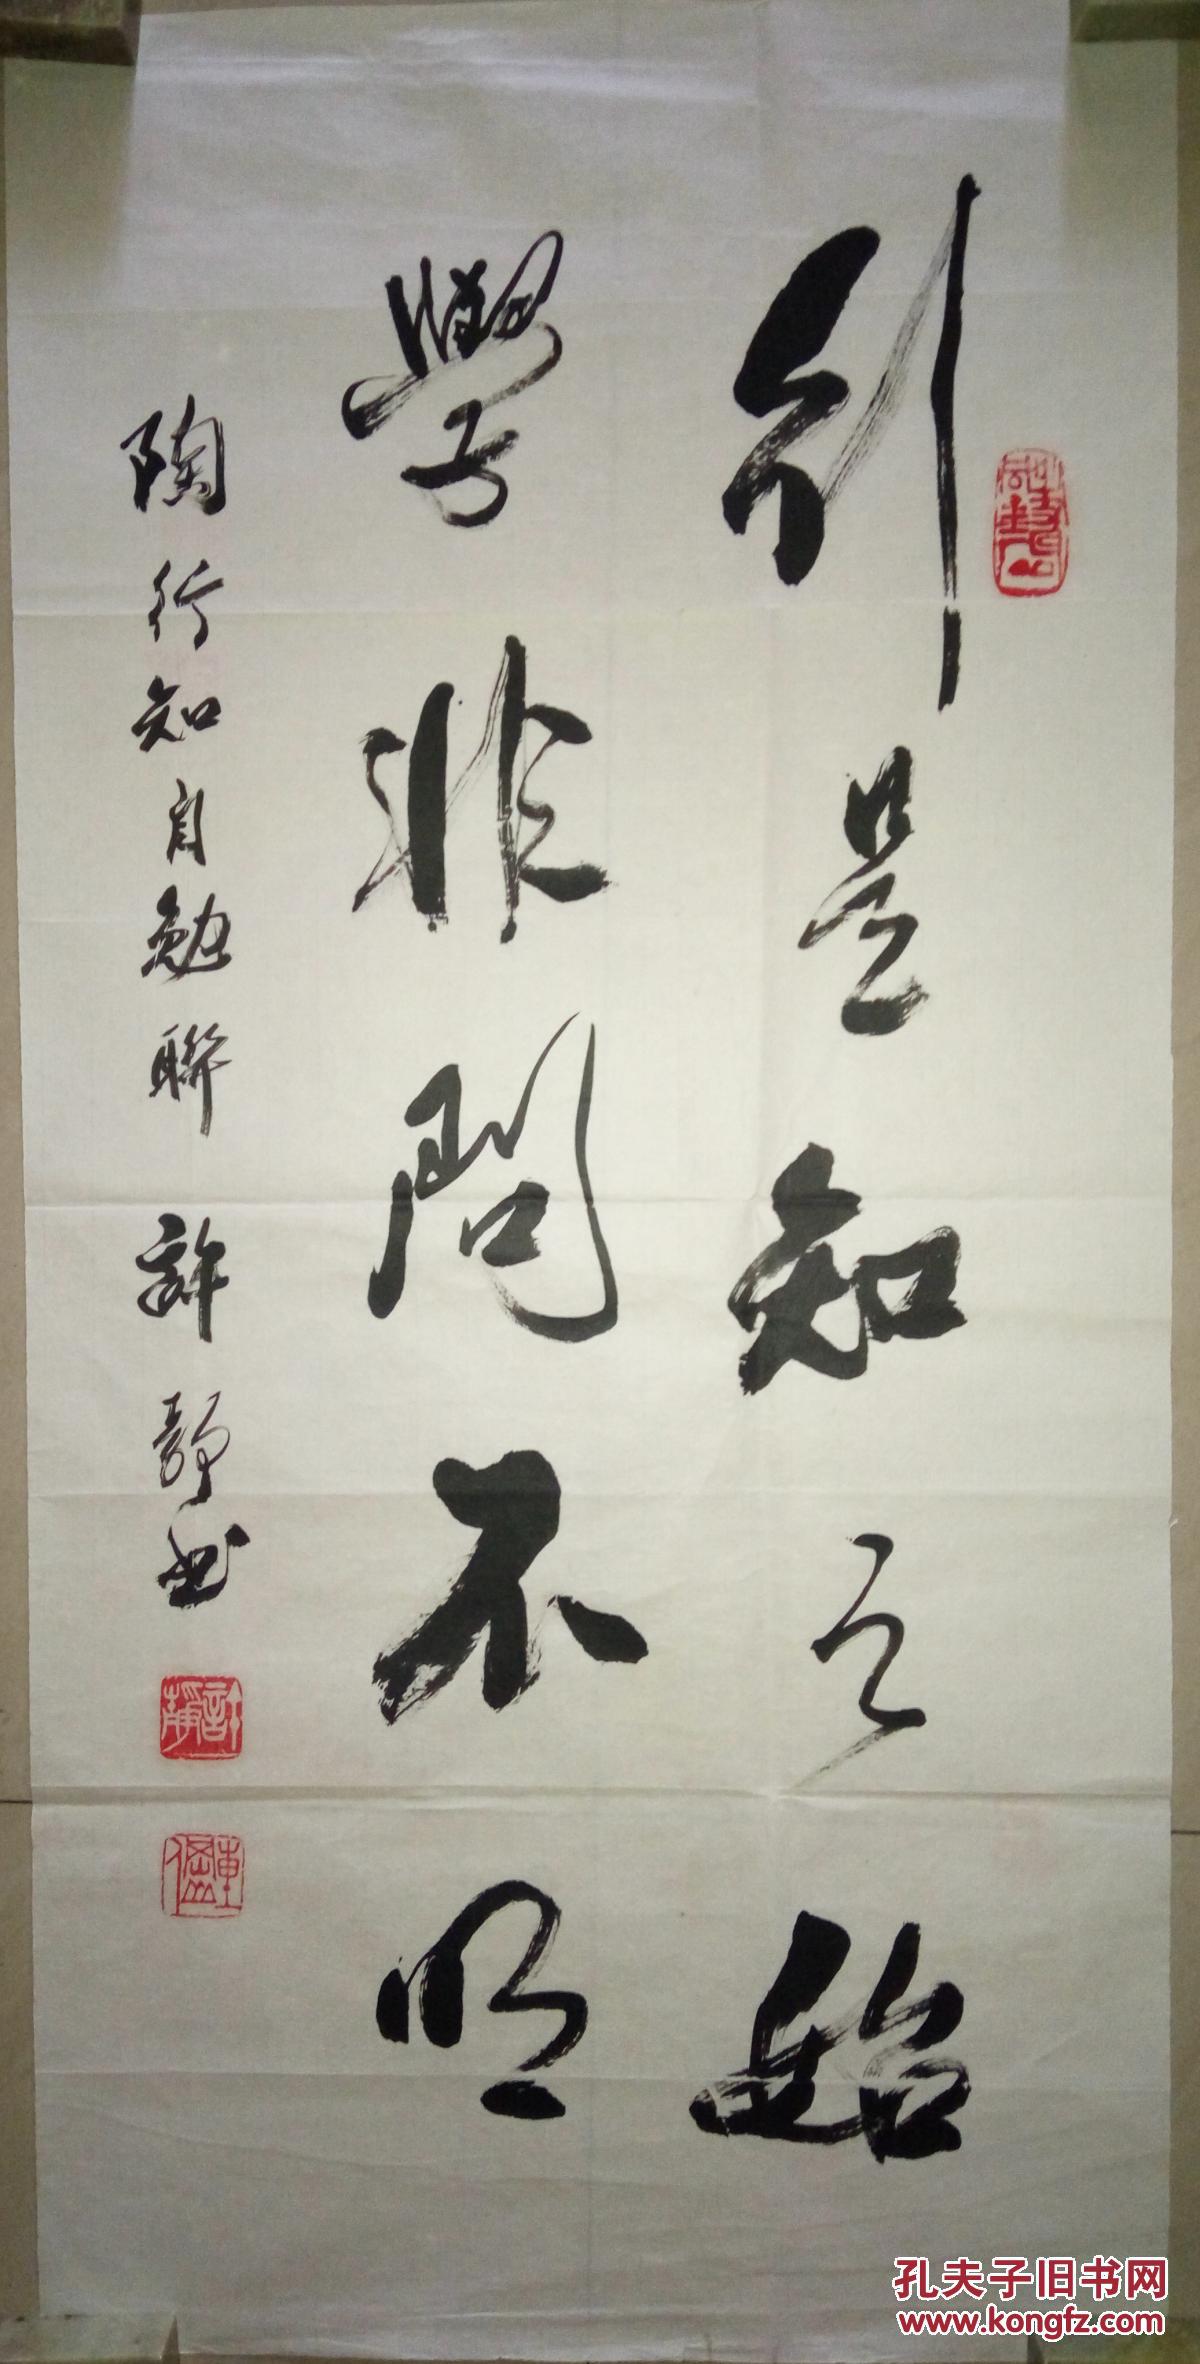 行是知之始
學非問不明
陶行知自勉聯 許靜書
許靜
孔夫子旧书网
www.kongfz.com